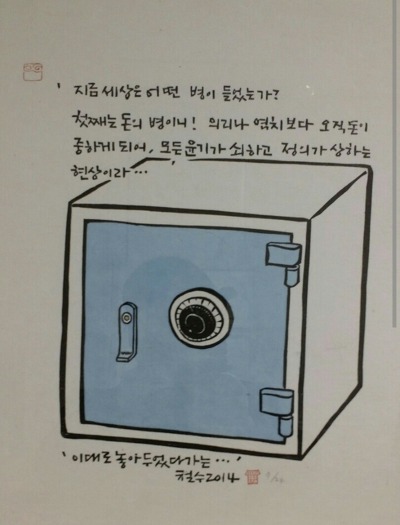 ' 지금 세상은 어떤 병이 들었는가?
첫째는 돈의 병이니! 의리나 염치보다 오직 돈이
중하게 되어, 모든 윤기가 쇠하고 정의가 상하는
현상이라…'
'이대로 놓아 두었다가는…'
철수 2014